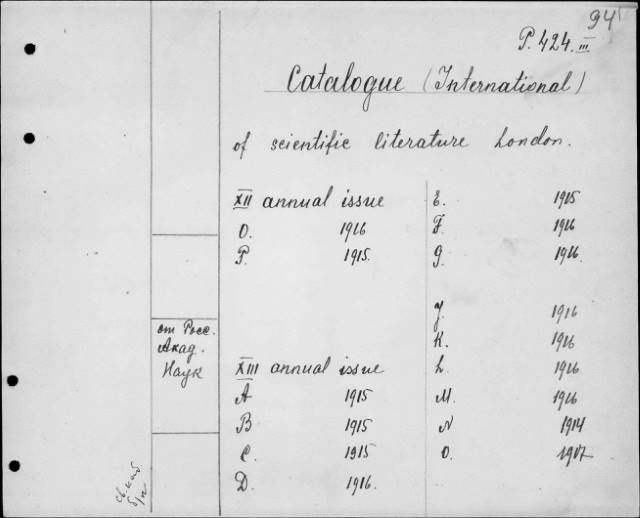 94
P. 424. III
Catalogue (International)
of scientific literature London.
XII annual issue
O. 1916
P. 1915.
XIII annual issue
A 1915
B 1915
C. 1915
D. 1916.
E. 1915
F. 1916
G. 1916.
J. 1916
K. 1916
L. 1916
M. 1916
N 1914
O. 1917
от Росс.
Акад.
Наук